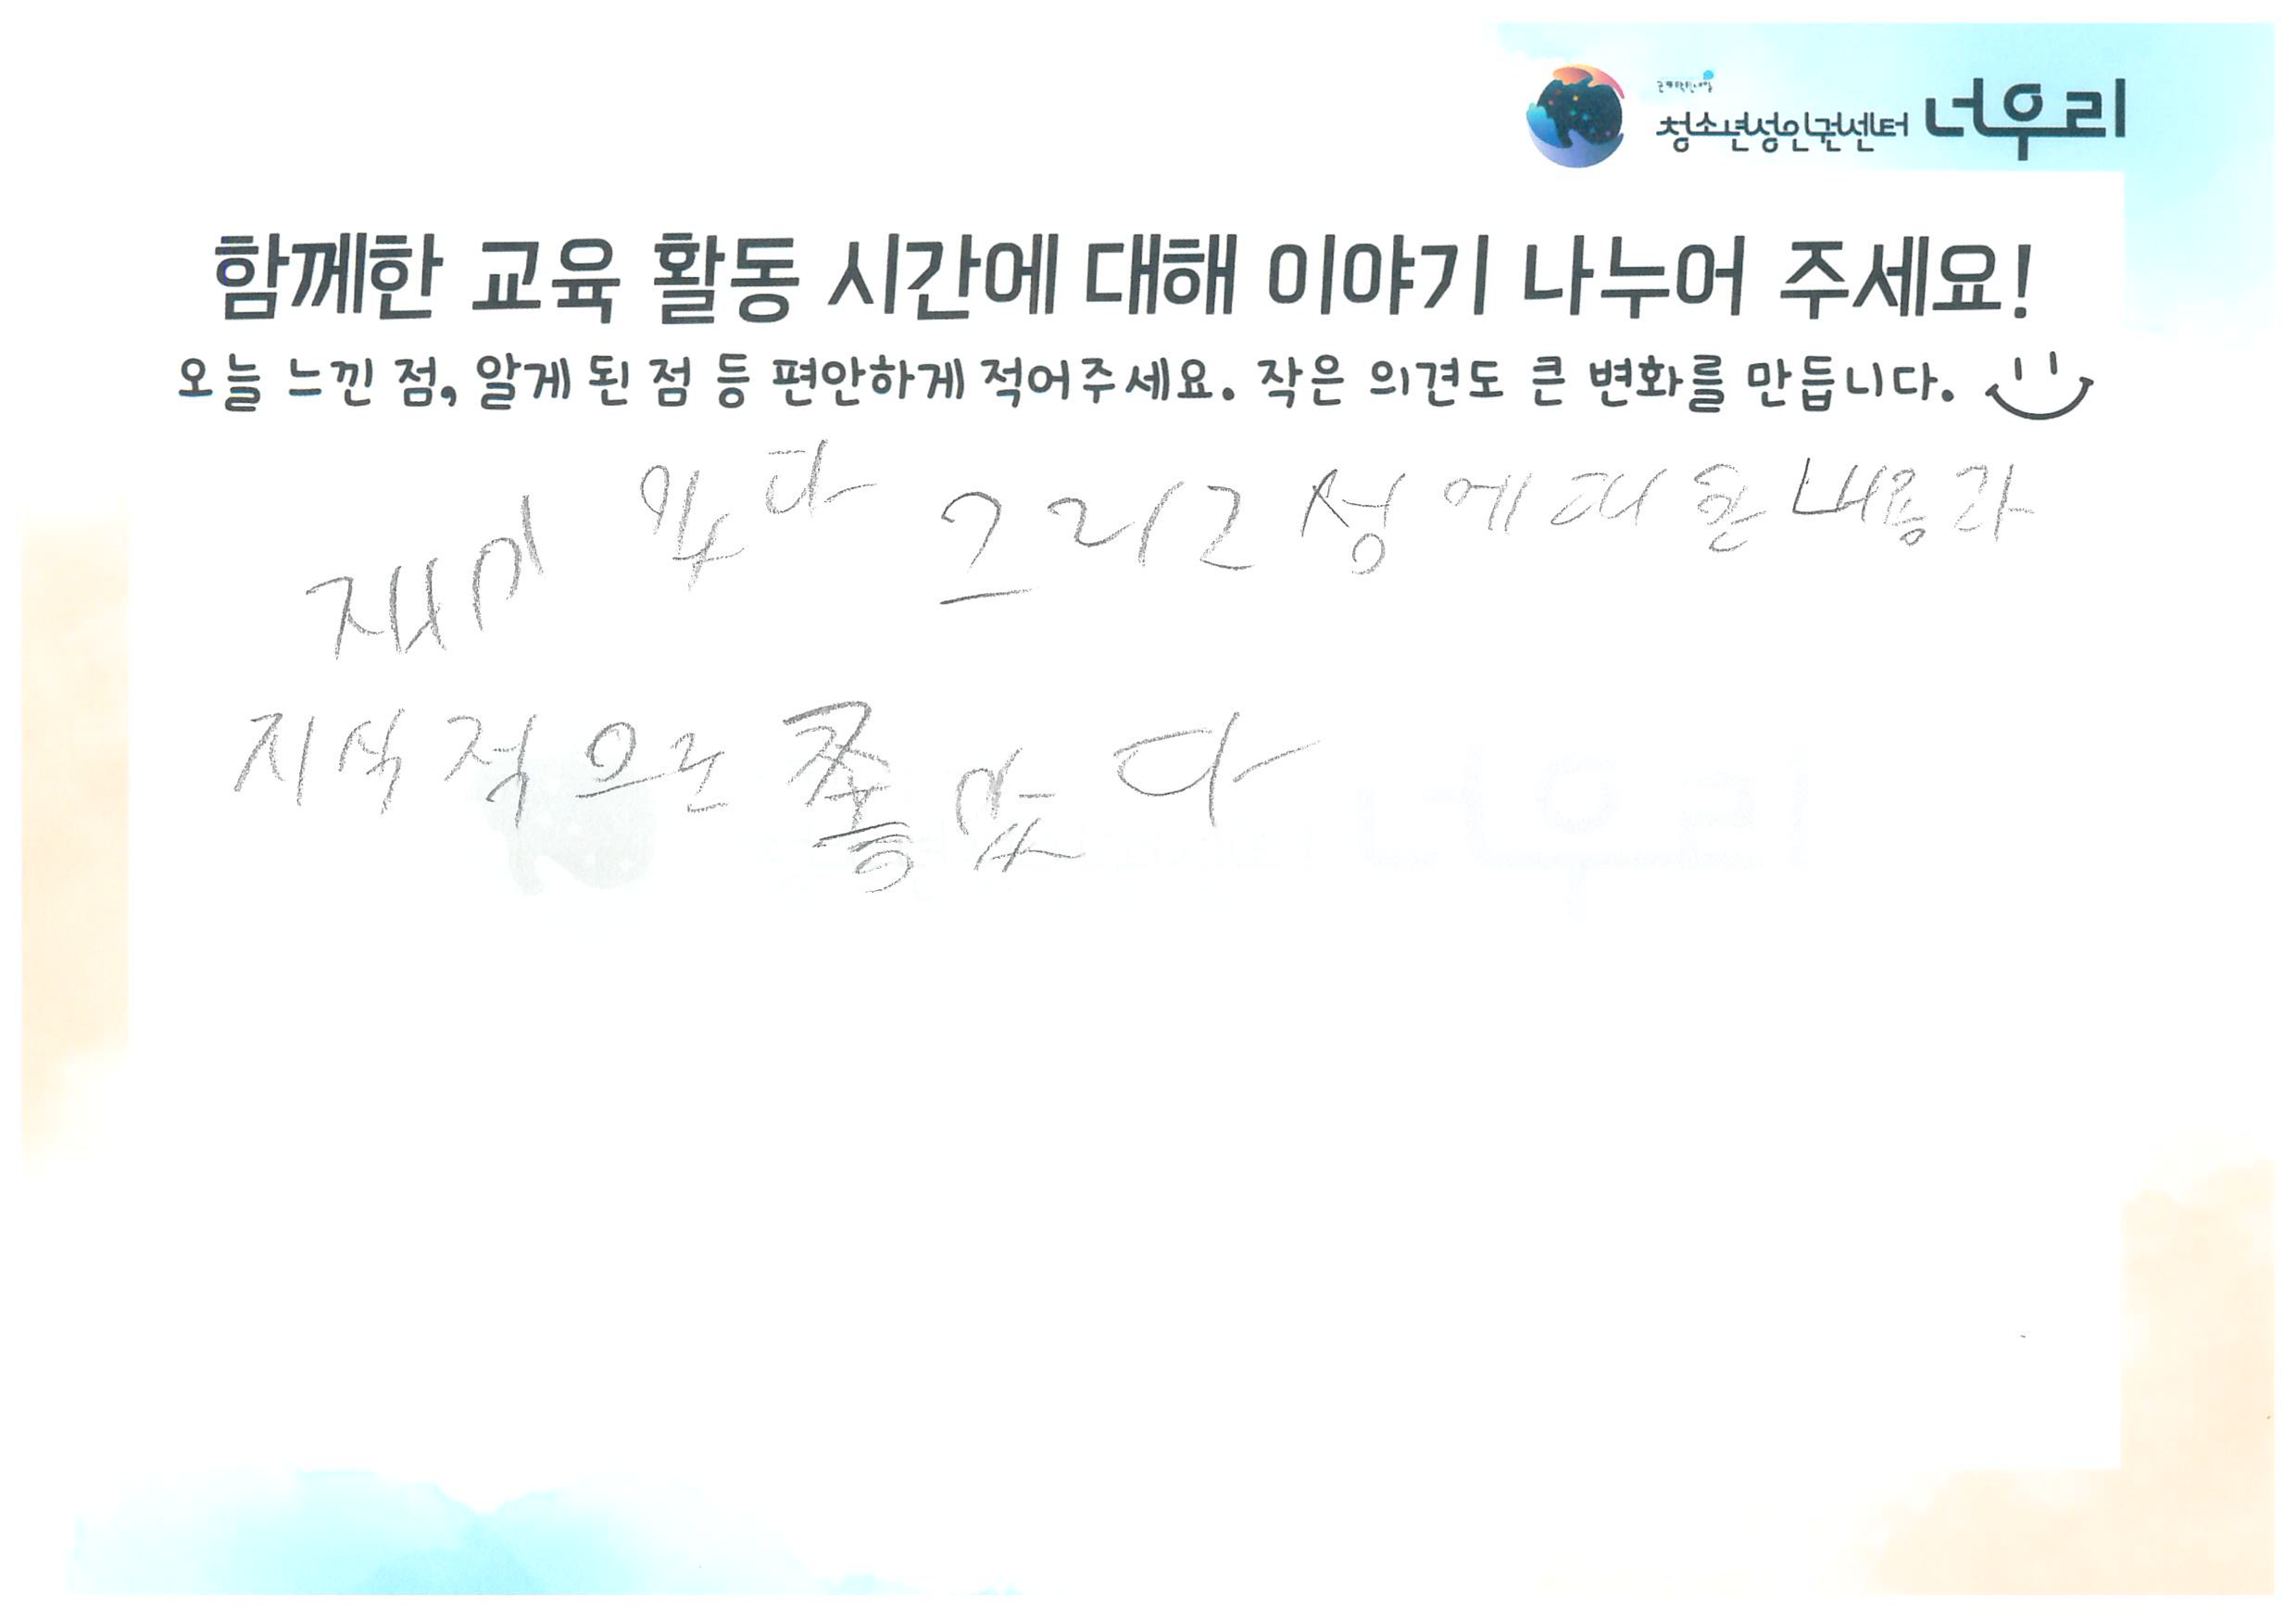 청소년성인권센터 너우리
함께한 교육 활동 시간에 대해 이야기 나누어 주세요!
오늘 느낀 점, 알게 된 점 등 편안하게 적어주세요. 작은 의견도 큰 변화를 만듭니다.
재미 있다 그리고 성에 대한 내용과
지식적으로 좋았다